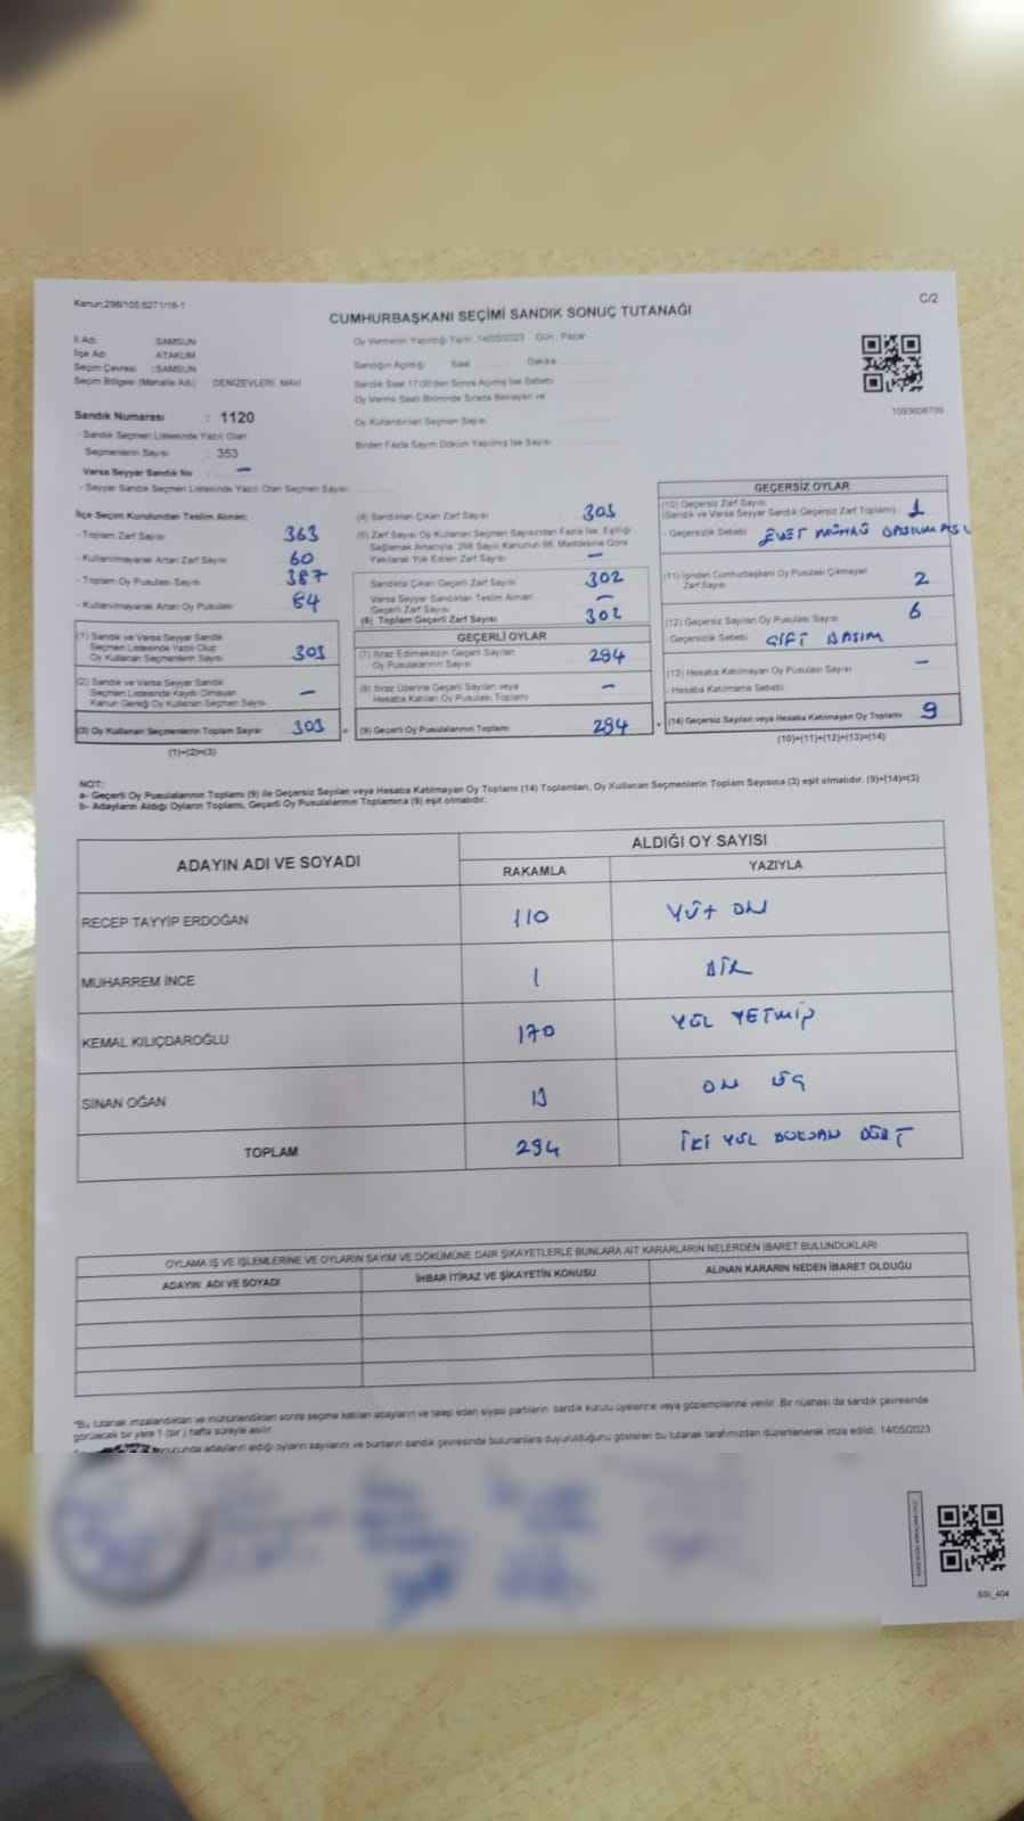 Kanun:298/105 6271/16-1
C/2
CUMHURBAŞKANI SEÇİMİ SANDIK SONUÇ TUTANAĞI
İl Adı SAMSUN
İlçe Adı ATAKUM
Seçim Çevresi : SAMSUN
Seçim Bölgesi (Mahalle Adı) DENİZEVLERİ MAH
Oy Vermenin Yapıldığı Tarih 14/05/2023 Gün: Pazar
Sandığın Açıldığı Saat Dakika
Oy Kullandırılan Seçmen Sayısı
Birden Fazla Sayım Döküm Yapılmış İse Sayısı
Sandık Numarası : 1120
- Sandık Seçmen Listesinde Yazılı Olan
Seçmenlerin Sayısı : 353
Varsa Seyyar Sandık No –
- Seyyar Sandık Seçmen Listesinde Yazılı Olan Seçmen Sayısı
İlçe Seçim Kurulundan Teslim Alınan:
- Toplam Zarf Sayısı 363
- Kullanılmayarak Artan Zarf Sayısı 60
- Toplam Oy Pusulası Sayısı 387
- Kullanılmayarak Artan Oy Pusulası 84
(1) Sandık ve Varsa Seyyar Sandık
Seçmen Listesinde Yazılı Olup
Oy Kullanan Seçmenlerin Sayısı 303
(2) Sandık ve Varsa Seyyar Sandık
Seçmen Listesinde Kayıtlı Olmayan
Kanun Gereği Oy Kullanan Seçmen Sayısı –
(3) Oy Kullanan Seçmenlerin Toplam Sayısı 303
(1)+(2)=(3)
(4) Sandıktan Çıkan Zarf Sayısı 303
(5) Zarf Sayısı Oy Kullanan Seçmen Sayısından Fazla İse, Eşitliği
Sağlamak Amacıyla 298 Sayılı Kanunun 98. Maddesine Göre
Yakılarak Yok Edilen Zarf Sayısı –
Sandıkta Çıkan Geçerli Zarf Sayısı 302
Varsa Seyyar Sandıktan Teslim Alınan
Geçerli Zarf Sayısı –
(6) Toplam Geçerli Zarf Sayısı 302
GEÇERLİ OYLAR
(7) İtiraz Edilmeksizin Geçerli Sayılan
Oy Pusulalarının Sayısı 294
(8) İtiraz Üzerine Geçerli Sayılan veya
Hesaba Katılan Oy Pusulası Toplamı –
(9) Geçerli Oy Pusulalarının Toplamı 294
GEÇERSİZ OYLAR
(10) Geçersiz Zarf Sayısı
(Sandık ve Varsa Seyyar Sandık Geçersiz Zarf Toplamı) 1
- Geçersizlik Sebebi EVET MÜHRÜ
(11) İçinden Cumhurbaşkanı Oy Pusulası Çıkmayan
Zarf Sayısı 2
(12) Geçersiz Sayılan Oy Pusulası Sayısı 6
Geçersizlik Sebebi ÇİFT BASIM
(13) Hesaba Katılmayan Oy Pusulası Sayısı –
- Hesaba Katılmama Sebebi
(14) Geçersiz Sayılan veya Hesaba Katılmayan Oy Toplamı 9
(10)+(11)+(12)+(13)=(14)
NOT:
a- Geçerli Oy Pusulalarının Toplamı (9) ile Geçersiz Sayılan veya Hesaba Katılmayan Oy Toplamı (14) Toplamları, Oy Kullanan Seçmenlerin Toplam Sayısına (3) eşit olmalıdır. (9)+(14)=(3)
b- Adayların Aldığı Oyların Toplamı, Geçerli Oy Pusulalarının Toplamına (9) eşit olmalıdır.
ADAYIN ADI VE SOYADI
ALDIĞI OY SAYISI
RAKAMLA YAZIYLA
RECEP TAYYİP ERDOĞAN 110 YÜZ ON
MUHARREM İNCE 1 BİR
KEMAL KILIÇDAROĞLU 170 YÜZ YETMİŞ
SİNAN OĞAN 13 ON ÜÇ
TOPLAM 294 İKİ YÜZ DOKSAN DÖRT
OYLAMA İŞ VE İŞLEMLERİNE VE OYLARIN SAYIM VE DÖKÜMÜNE DAİR ŞİKAYETLERLE BUNLARA AİT KARARLARIN NELERDEN İBARET BULUNDUKLARI
ADAYIN ADI VE SOYADI İHBAR İTİRAZ VE ŞİKAYETİN KONUSU ALINAN KARARIN NEDEN İBARET OLDUĞU
"Bu tutanak imzalandıktan ve mühürlendikten sonra seçime katılan adayların ve talep eden siyasi partilerin sandık kurulu üyelerine veya gözlemcilerine verilir. Bir nüshası da sandık çevresinde
görülecek bir yere 1 (bir) hafta süreyle asılır.
adayların aldığı oyların sayılarını ve bunların sandık çevresinde bulunanlara duyurulduğunu gösteren bu tutanak tarafımızdan düzenlenerek imza edildi. 14/05/2023